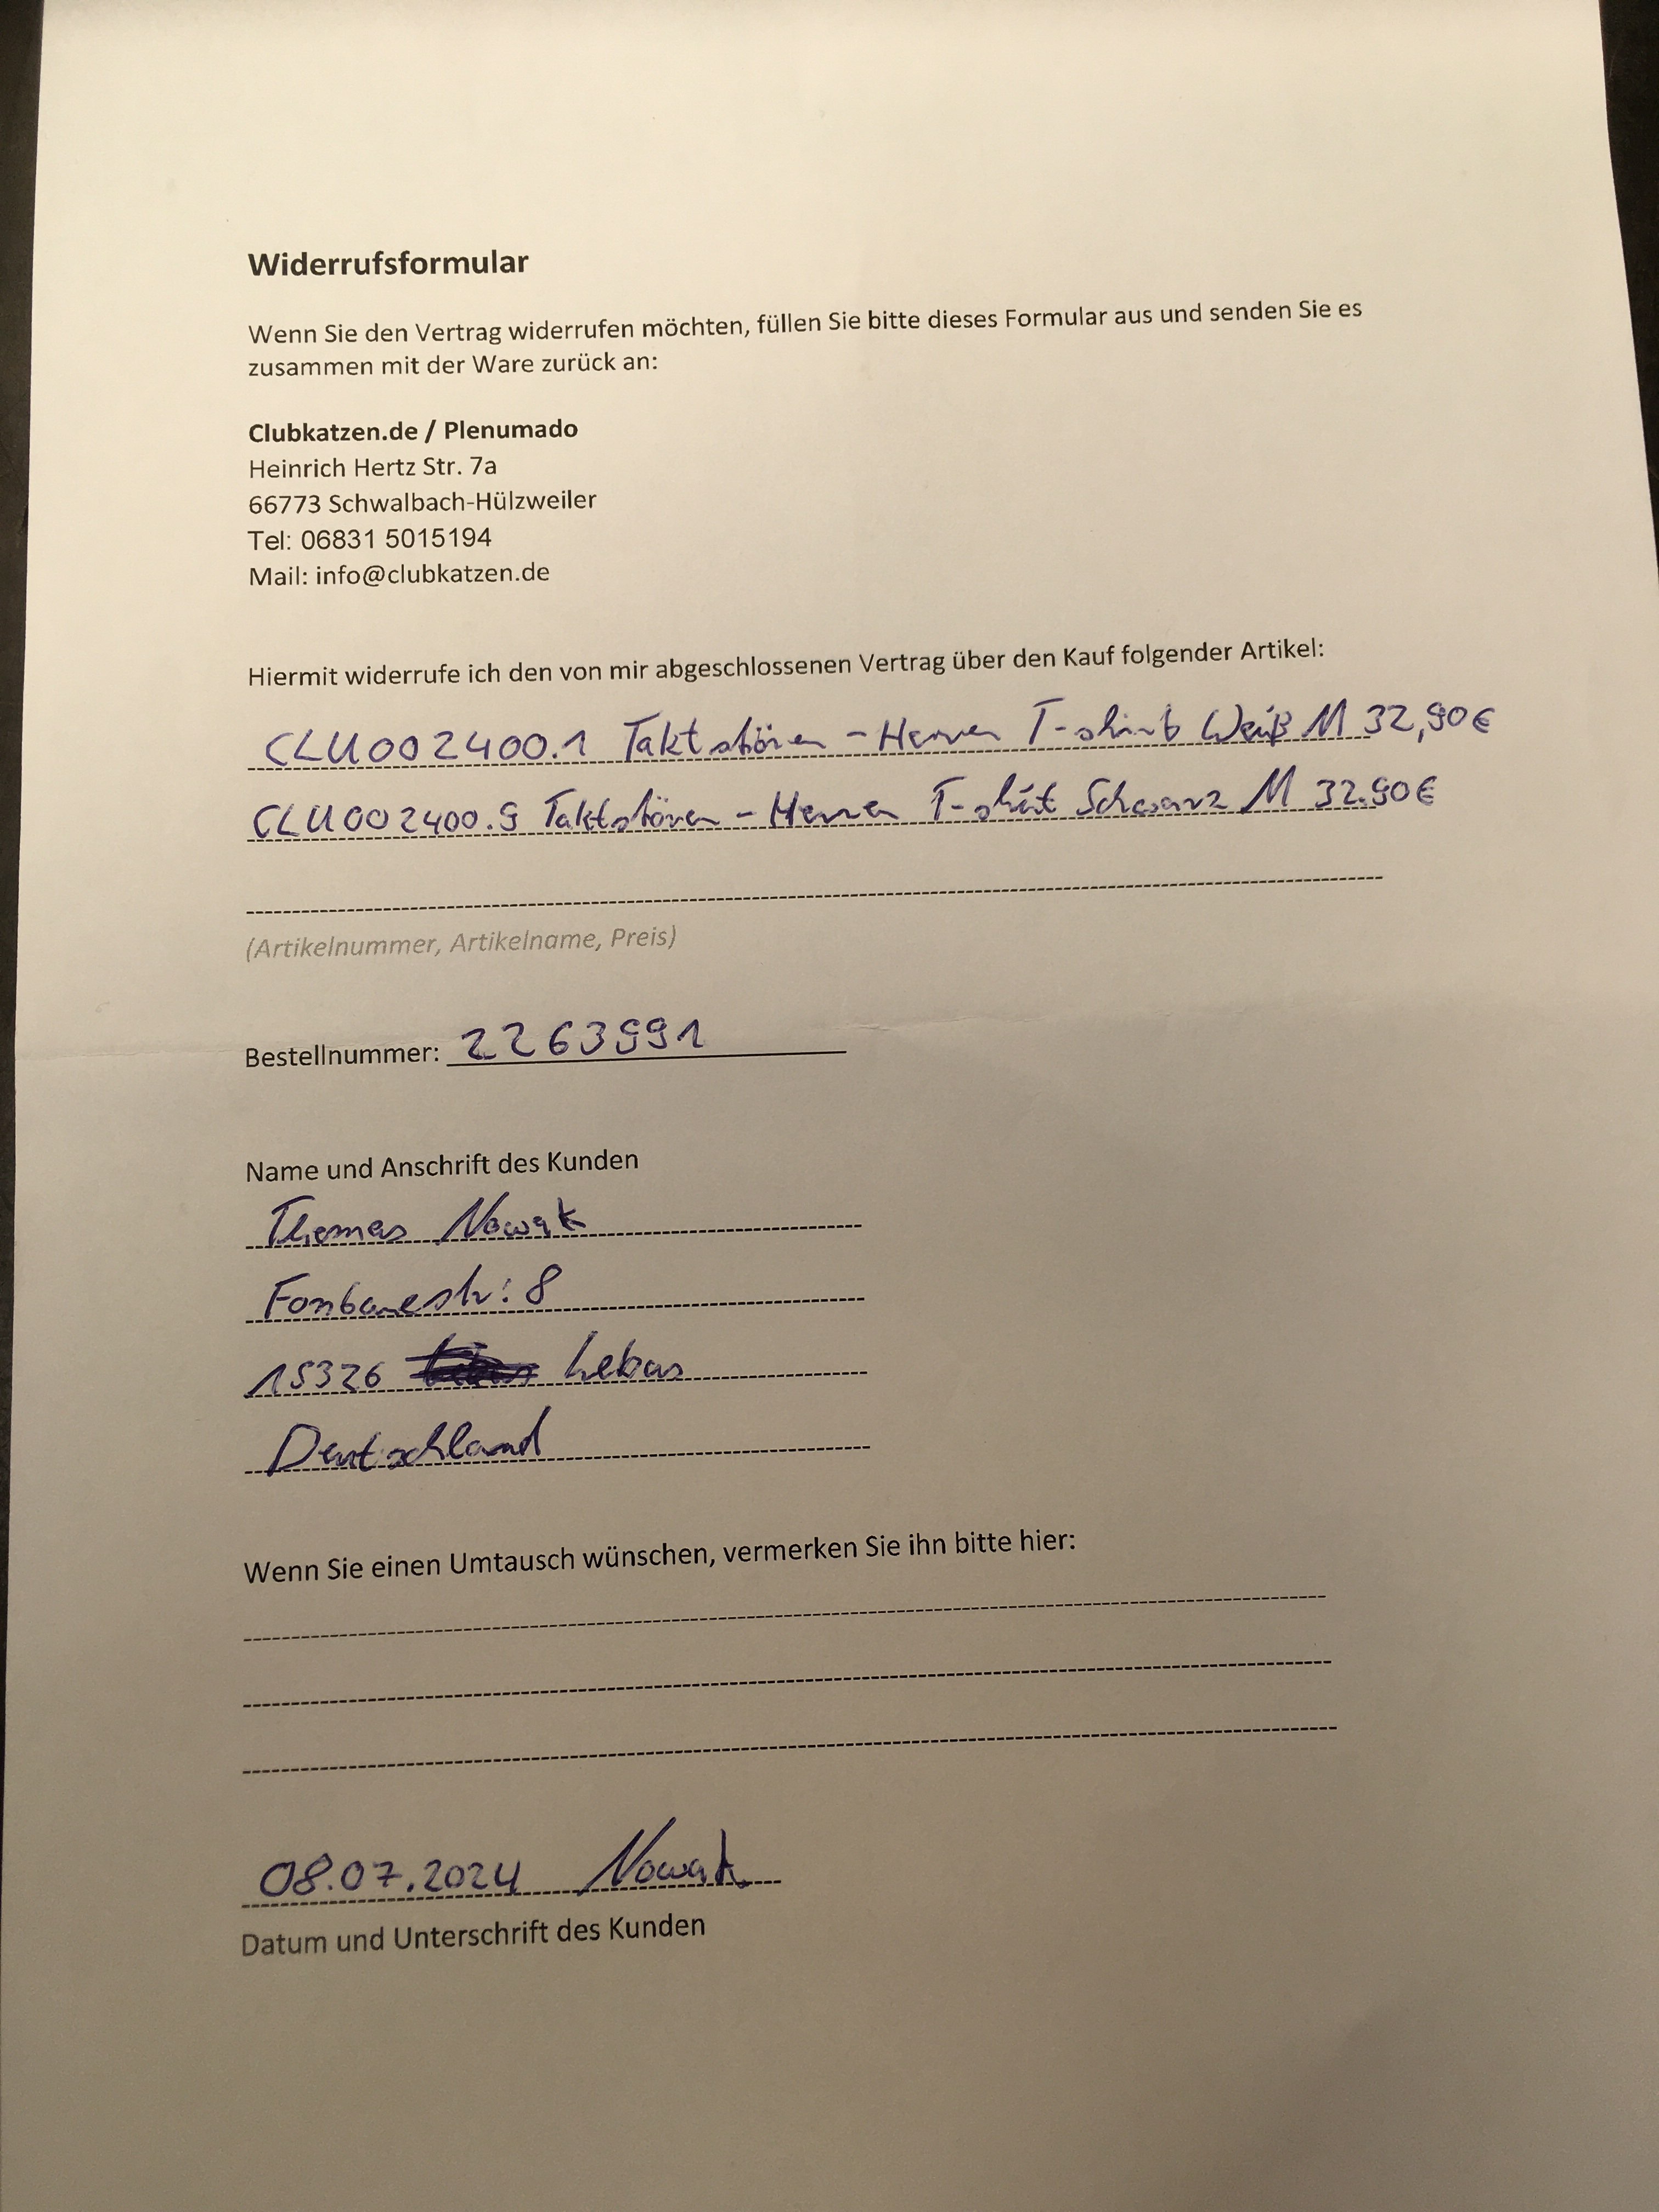 Widerrufsformular
Wenn Sie den Vertrag widerrufen möchten, füllen Sie bitte dieses Formular aus und senden Sie es
zusammen mit der Ware zurück an:
Clubkatzen.de / Plenumado
Heinrich Hertz Str. 7a
66773 Schwalbach-Hülzweiler
Tel: 06831 5015194
Mail: info@clubkatzen.de
Hiermit widerrufe ich den von mir abgeschlossenen Vertrag über den Kauf folgender Artikel:
CLU002400.1 Taktstörer - Herren T-shirt Weiß M 32,90€
CLU002400.9 Taktstörer - Herren T-shirt Schwarz M 32.90€
(Artikelnummer, Artikelname, Preis)
Bestellnummer: 2263991
Name und Anschrift des Kunden
Thomas Nowak
Fontanestr. 8
15326 Lebus
Deutschland
Wenn Sie einen Umtausch wünschen, vermerken Sie ihn bitte hier:
08.07.2024 Nowak
Datum und Unterschrift des Kunden